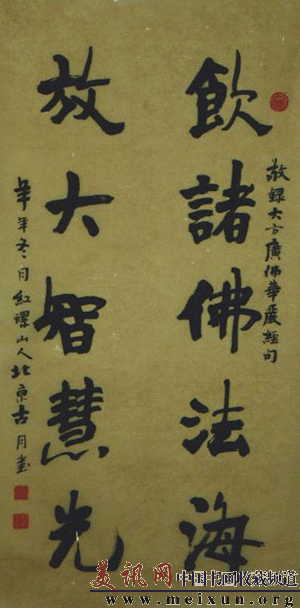 敬録大方廣佛華嚴經句
飲諸佛法海
放大智慧光
冬月紅螺山人北京古月書
美讯网 中国书画收藏频道
www.meixun.org